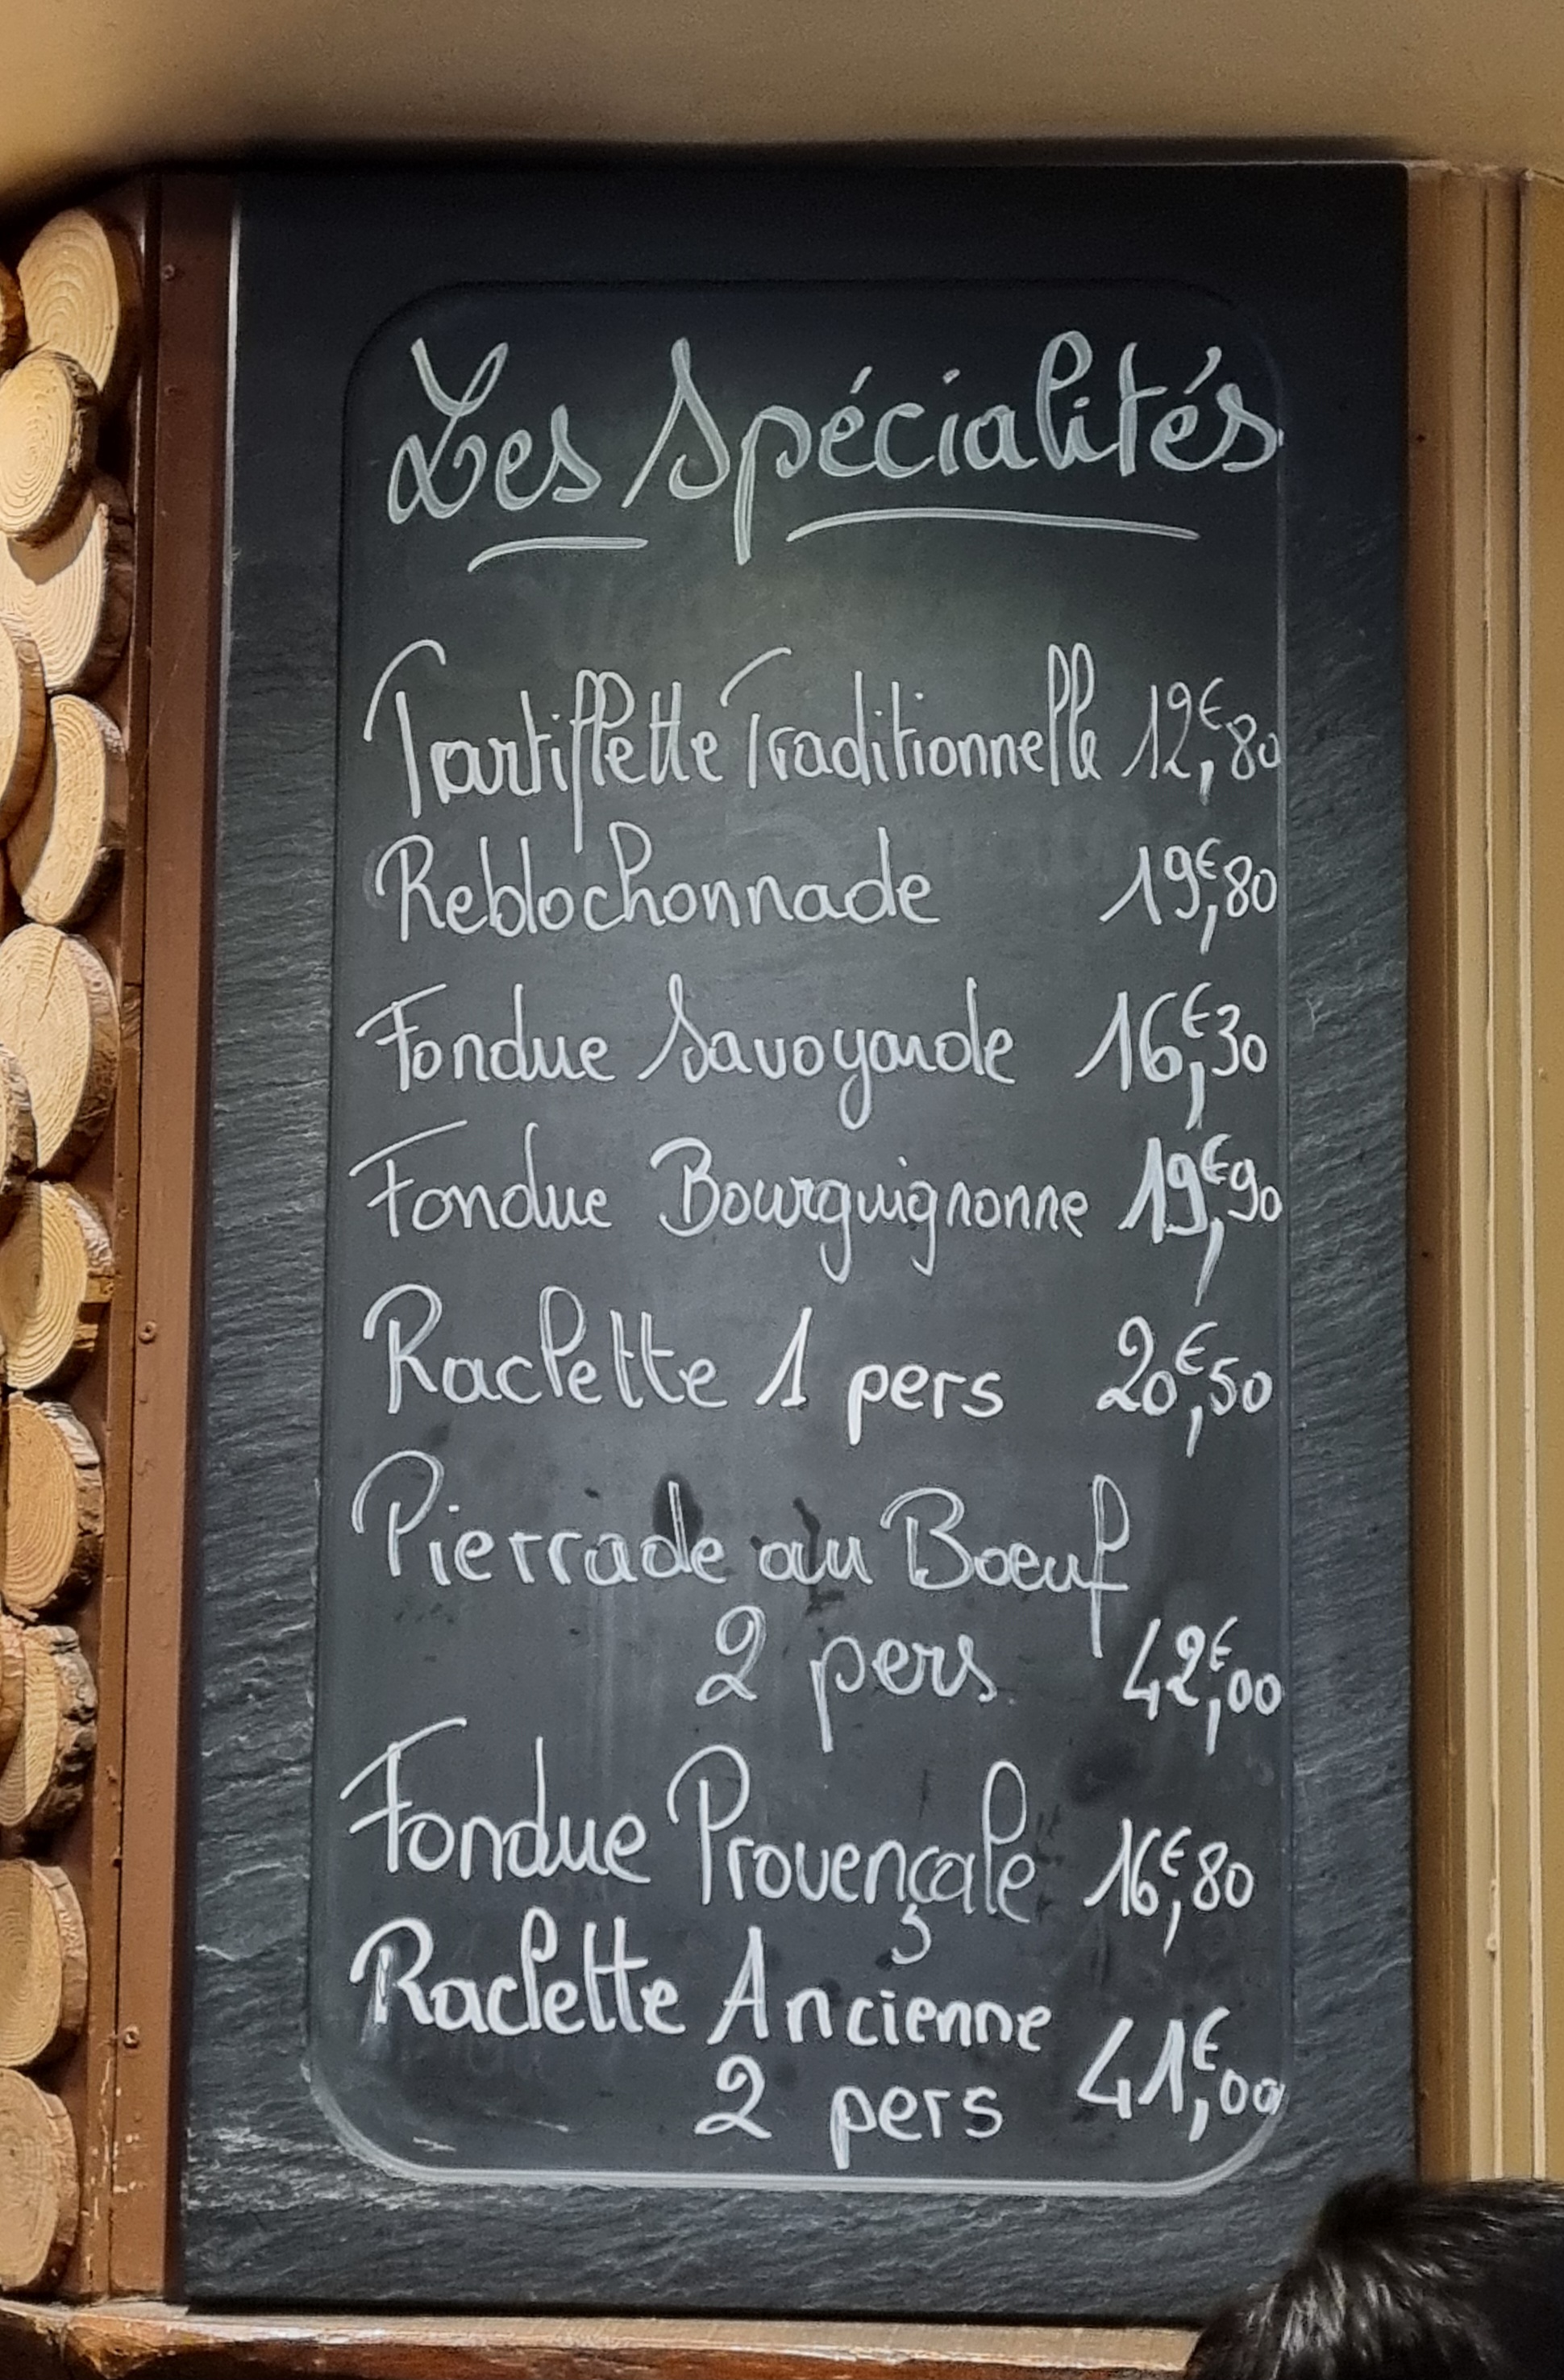 Les Spécialités
Tartiflette Traditionnelle 12€,80
Reblochonnade 19€,80
Fondue Savoyarde 16€,30
Fondue Bourguignonne 19€,90
Raclette 1 pers 20€,50
Pierrade au Boeuf
2 pers 42€,00
Fondue Provençale 16€,80
Raclette Ancienne
2 pers 41€,00